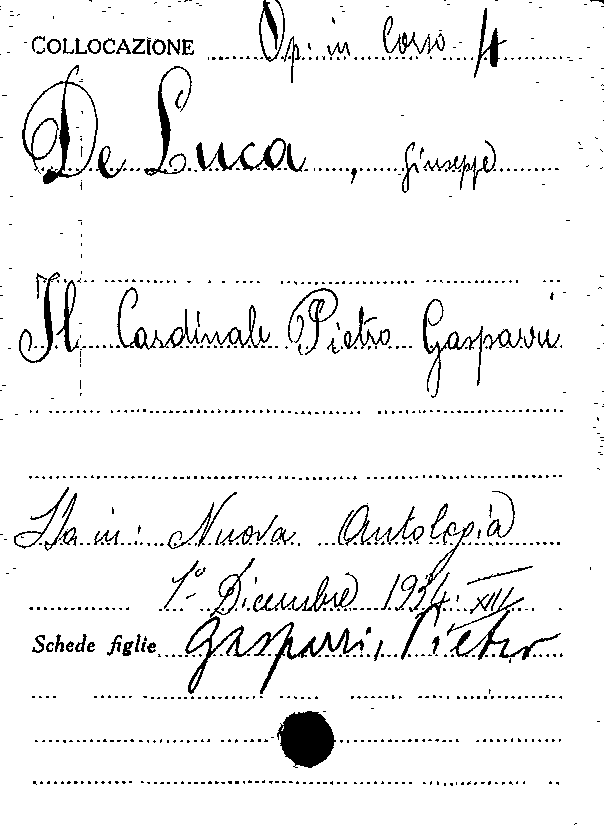 COLLOCAZIONE Op. in Corso 4
De Luca, Giuseppe
Il Cardinale Pietro Gasparri
Sta in: Nuova Antologia
1° Dicembre 1934. XIII
Schede figlie Gasparri, Pietro